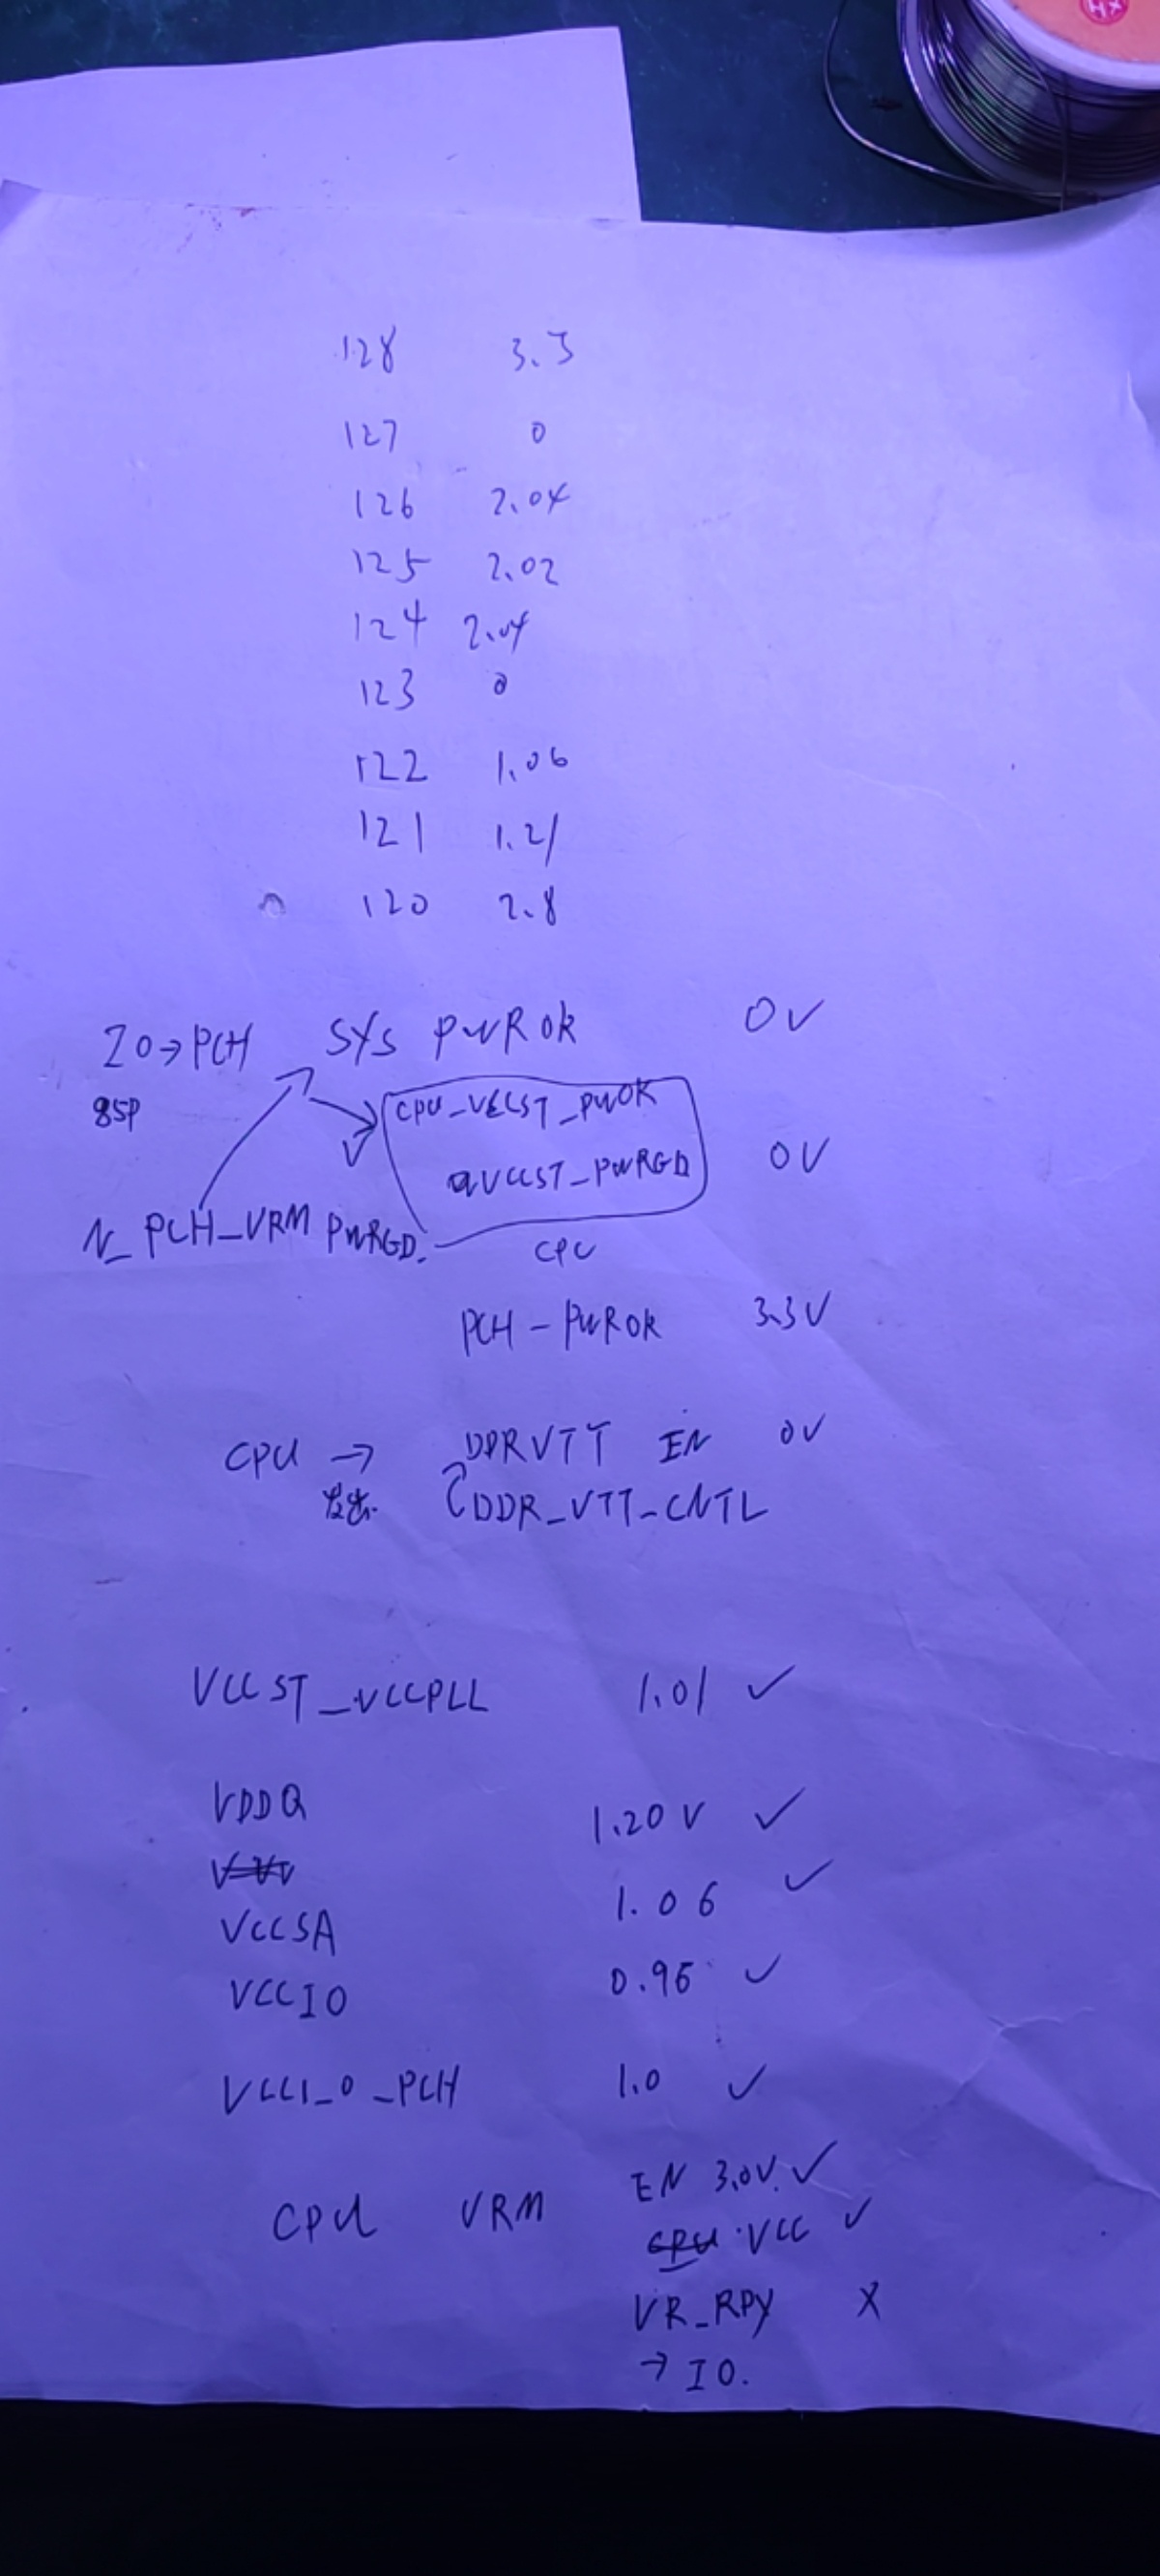 HX
128 3.3
127 0
126 2.04
125 2.02
124 2.04
123 0
122 1.06
121 1.21
120 2.8
IO→PCH SYS PWROK 0V
85P CPU_VCCST_PWOK
VCCST_PWRGD 0V
N_PCH_VRM PWRGD.
CPU
PCH-PWROK 3.3V
CPU → DDRVTT EN 0V
发出. DDR_VTT-CNTL
VCCST_VCCPLL 1.01 ✓
VDDQ 1.20V ✓
VCCSA 1.06 ✓
VCCIO 0.95 ✓
VCC1_0_PCH 1.0 ✓
CPU VRM EN 3.0V. ✓
VCC ✓
VR_RDY X
→ IO.